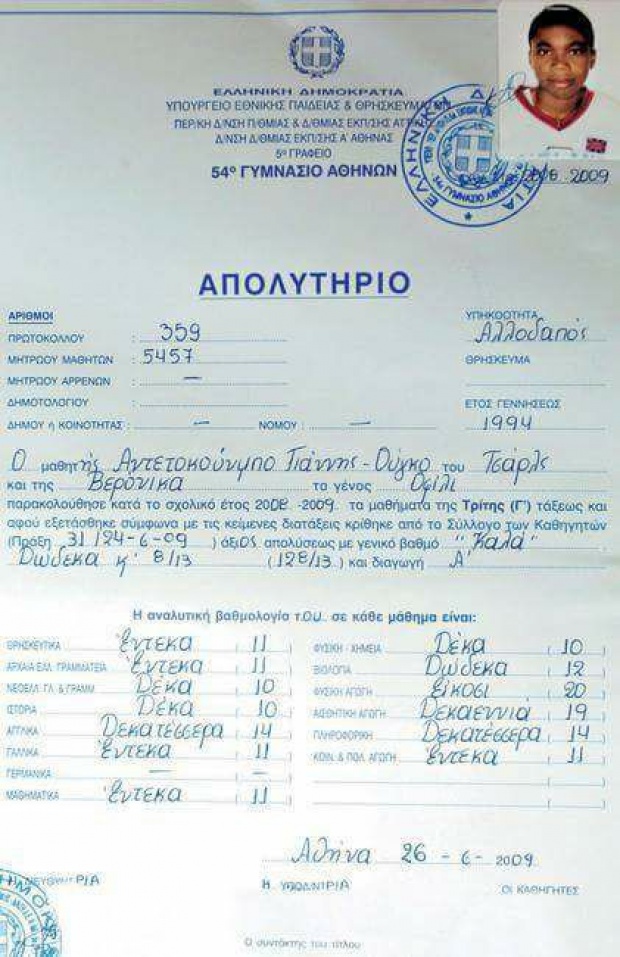 ΕΛΛΗΝΙΚΗ ΔΗΜΟΚΡΑΤΙΑ
ΥΠΟΥΡΓΕΙΟ ΕΘΝΙΚΗΣ ΠΑΙΔΕΙΑΣ & ΘΡΗΣΚΕΥΜΑΤΩΝ
ΠΕΡ/ΚΗ Δ/ΝΣΗ Π/ΘΜΙΑΣ & Δ/ΘΜΙΑΣ ΕΚΠ/ΣΗΣ ΑΤΤΙΚΗΣ
Δ/ΝΣΗ Δ/ΘΜΙΑΣ ΕΚΠ/ΣΗΣ Α' ΑΘΗΝΑΣ
5º ΓΡΑΦΕΙΟ
54º ΓΥΜΝΑΣΙΟ ΑΘΗΝΩΝ
2008 - 2009
ΑΠΟΛΥΤΗΡΙΟ
ΑΡΙΘΜΟΙ
ΠΡΩΤΟΚΟΛΛΟΥ : 359
ΜΗΤΡΩΟΥ ΜΑΘΗΤΩΝ : 5457
ΜΗΤΡΩΟΥ ΑΡΡΕΝΩΝ : —
ΔΗΜΟΤΟΛΟΓΙΟΥ :
ΔΗΜΟΥ ή ΚΟΙΝΟΤΗΤΑΣ : — ΝΟΜΟΥ : —
ΥΠΗΚΟΟΤΗΤΑ
Αλλοδαπός
ΘΡΗΣΚΕΥΜΑ
ΕΤΟΣ ΓΕΝΝΗΣΕΩΣ
1994
Ο μαθητής Αντετοκούνμπο Γιάννης-Ούγκο του Τσάρλς
και της Βερόνικα το γένος Οφίλι
παρακολούθησε κατά το σχολικό έτος 2008 -2009 τα μαθήματα της Τρίτης (Γ') τάξεως και
αφού εξετάσθηκε σύμφωνα με τις κείμενες διατάξεις κρίθηκε από το Σύλλογο των Καθηγητών
(Πράξη 31/24-6-09 ) άξιος απολύσεως με γενικό βαθμό "Καλά"
Δώδεκα κ' 8/13 (128/13) και διαγωγή Α'
Η αναλυτική βαθμολογία του σε κάθε μάθημα είναι:
ΘΡΗΣΚΕΥΤΙΚΑ Έντεκα ( 11 )
ΑΡΧΑΙΑ ΕΛΛ. ΓΡΑΜΜΑΤΕΙΑ Έντεκα ( 11 )
ΝΕΟΕΛΛ. ΓΛ & ΓΡΑΜΜ Δέκα ( 10 )
ΙΣΤΟΡΙΑ Δέκα ( 10 )
ΑΓΓΛΙΚΑ Δεκατέσσερα ( 14 )
ΓΑΛΛΙΚΑ Έντεκα ( 11 )
ΓΕΡΜΑΝΙΚΑ — ( — )
ΜΑΘΗΜΑΤΙΚΑ Έντεκα ( 11 )
ΦΥΣΙΚΗ - ΧΗΜΕΙΑ Δέκα ( 10 )
ΒΙΟΛΟΓΙΑ Δώδεκα ( 12 )
ΦΥΣΙΚΗ ΑΓΩΓΗ Είκοσι ( 20 )
ΑΙΣΘΗΤΙΚΗ ΑΓΩΓΗ Δεκαεννιά ( 19 )
ΠΛΗΡΟΦΟΡΙΚΗ Δεκατέσσερα ( 14 )
ΚΟΙΝ. & ΠΟΛ. ΑΓΩΓΗ Έντεκα ( 11 )
Αθήνα 26 - 6 - 2009
Η ΥΠΟΔ/ΝΤΡΙΑ
ΟΙ ΚΑΘΗΓΗΤΕΣ
Ο συντάκτης του τίτλου